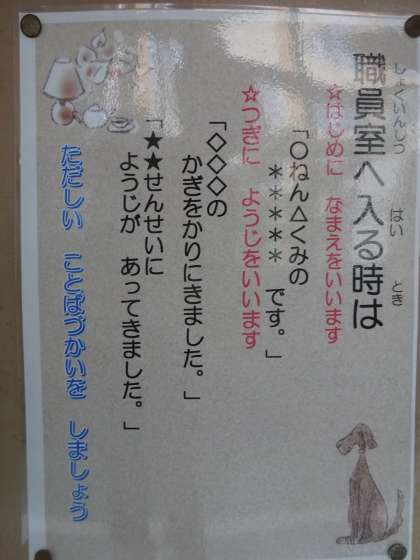 職員室へ入る時は
しょくいんしつ はい とき
☆はじめに なまえをいいます
「〇ねん△くみの
＊＊＊＊＊ です。」
☆つぎに ようじをいいます
「◇◇◇の
かぎをかりにきました。」
「★★せんせいに
ようじが あってきました。」
ただしい ことばづかいを しましょう